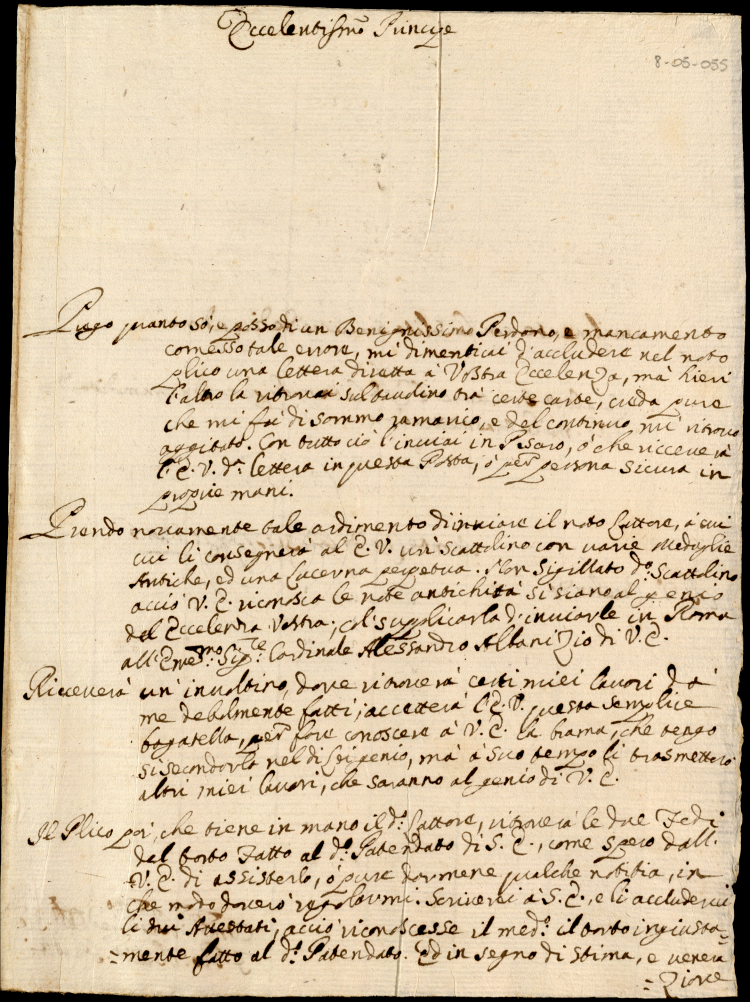 Eccelentissmo Principe
8-05-055
Priego quanto sò, e posso di un Benignissimo Perdono, e mancamento
comesso tale errore, mi dimenticai d'accludere nel noto
plico una lettera diretta à Vostra Eccelenza, mà hieri
l'altro la ritrovai sul taulino trà certe carte, creda pure
che mi fù di sommo ramarico, e del continuo mi ritrovo
aggitato. Con tutto ciò l'inviai in Pesaro, ò che riceverà
l'E. V. dª. lettera in questa Posta, ò per persona sicura in
proprie mani.
Prendo novamente tale ardimento di inviare il noto Lattore, à cui
cui li consegnerà al E. V. un Scattolino con varie Medaglie
Antiche, ed una Lucerna perpetua. Non Sigillato do. Scattolino
acciò V. E. riconosca le note antichità si siano al genio
del Eccelenza Vostra, col supplicarla d'inviarle in Roma
all'Ememo. Sigr. Cardinale Alessandro Albani Zio di V. E.
Riceverà un' involtino, dove ritroverà certi miei lavori da
me debolmente fatti; accetterà l'E. V. questa semplice
bagatella, per fare conoscere à V. E. la brama, che tengo
si secondarla nel di Lei genio, mà à suo tempo li trasmetterò
altri miei lavori, che saranno al genio di V. E.
Il Plico poi, che tiene in mano il do. Lattore, ritroverà le due Fedi
del torto Fatto al do. Patendato di S. E., come spero dall'
V. E. di assisterlo, ò pure darmene qualche notitia, in
che modo doverò regolarmi. Scriverei à S. E., e li accluderei
li dui Attestati, acciò riconoscesse il medo. il torto ingiusta=
=mente fatto al do. Patendato. Ed in segno di stima, e venera
=zione